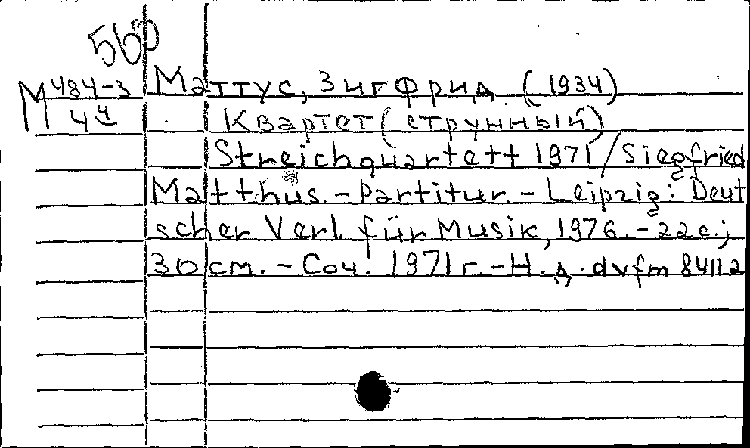 560
М 484-3 Маттус, Зигфрид (1934)
44 Квартет (струнный)
Streichquartett 1971 / Siegfried
Matthus. - Partitur. - Leipzig: Deut
scher Verl. für Musik, 1976. - 22 с.;
30 cm. - Соч. 1971 г. - Н. д. dvfm 84112